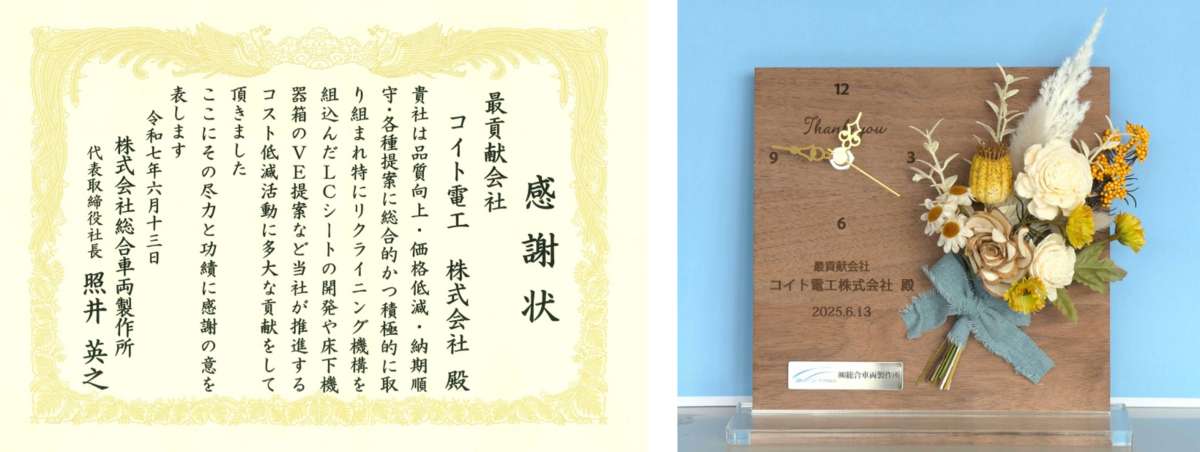 感謝状
最貢献会社
コイト電工 株式会社 殿
貴社は品質向上・価格低減・納期順
守・各種提案に総合的かつ積極的に取
り組まれ特にリクライニング機構を
組込んだLCシートの開発や床下機
器箱のVE提案など当社が推進する
コスト低減活動に多大な貢献をして
頂きました
ここにその尽力と功績に感謝の意を
表します
令和七年六月十三日
株式会社総合車両製作所
代表取締役社長 照井 英之
12
Thank you
9
3
6
最貢献会社
コイト電工株式会社 殿
2025.6.13
㈱総合車両製作所